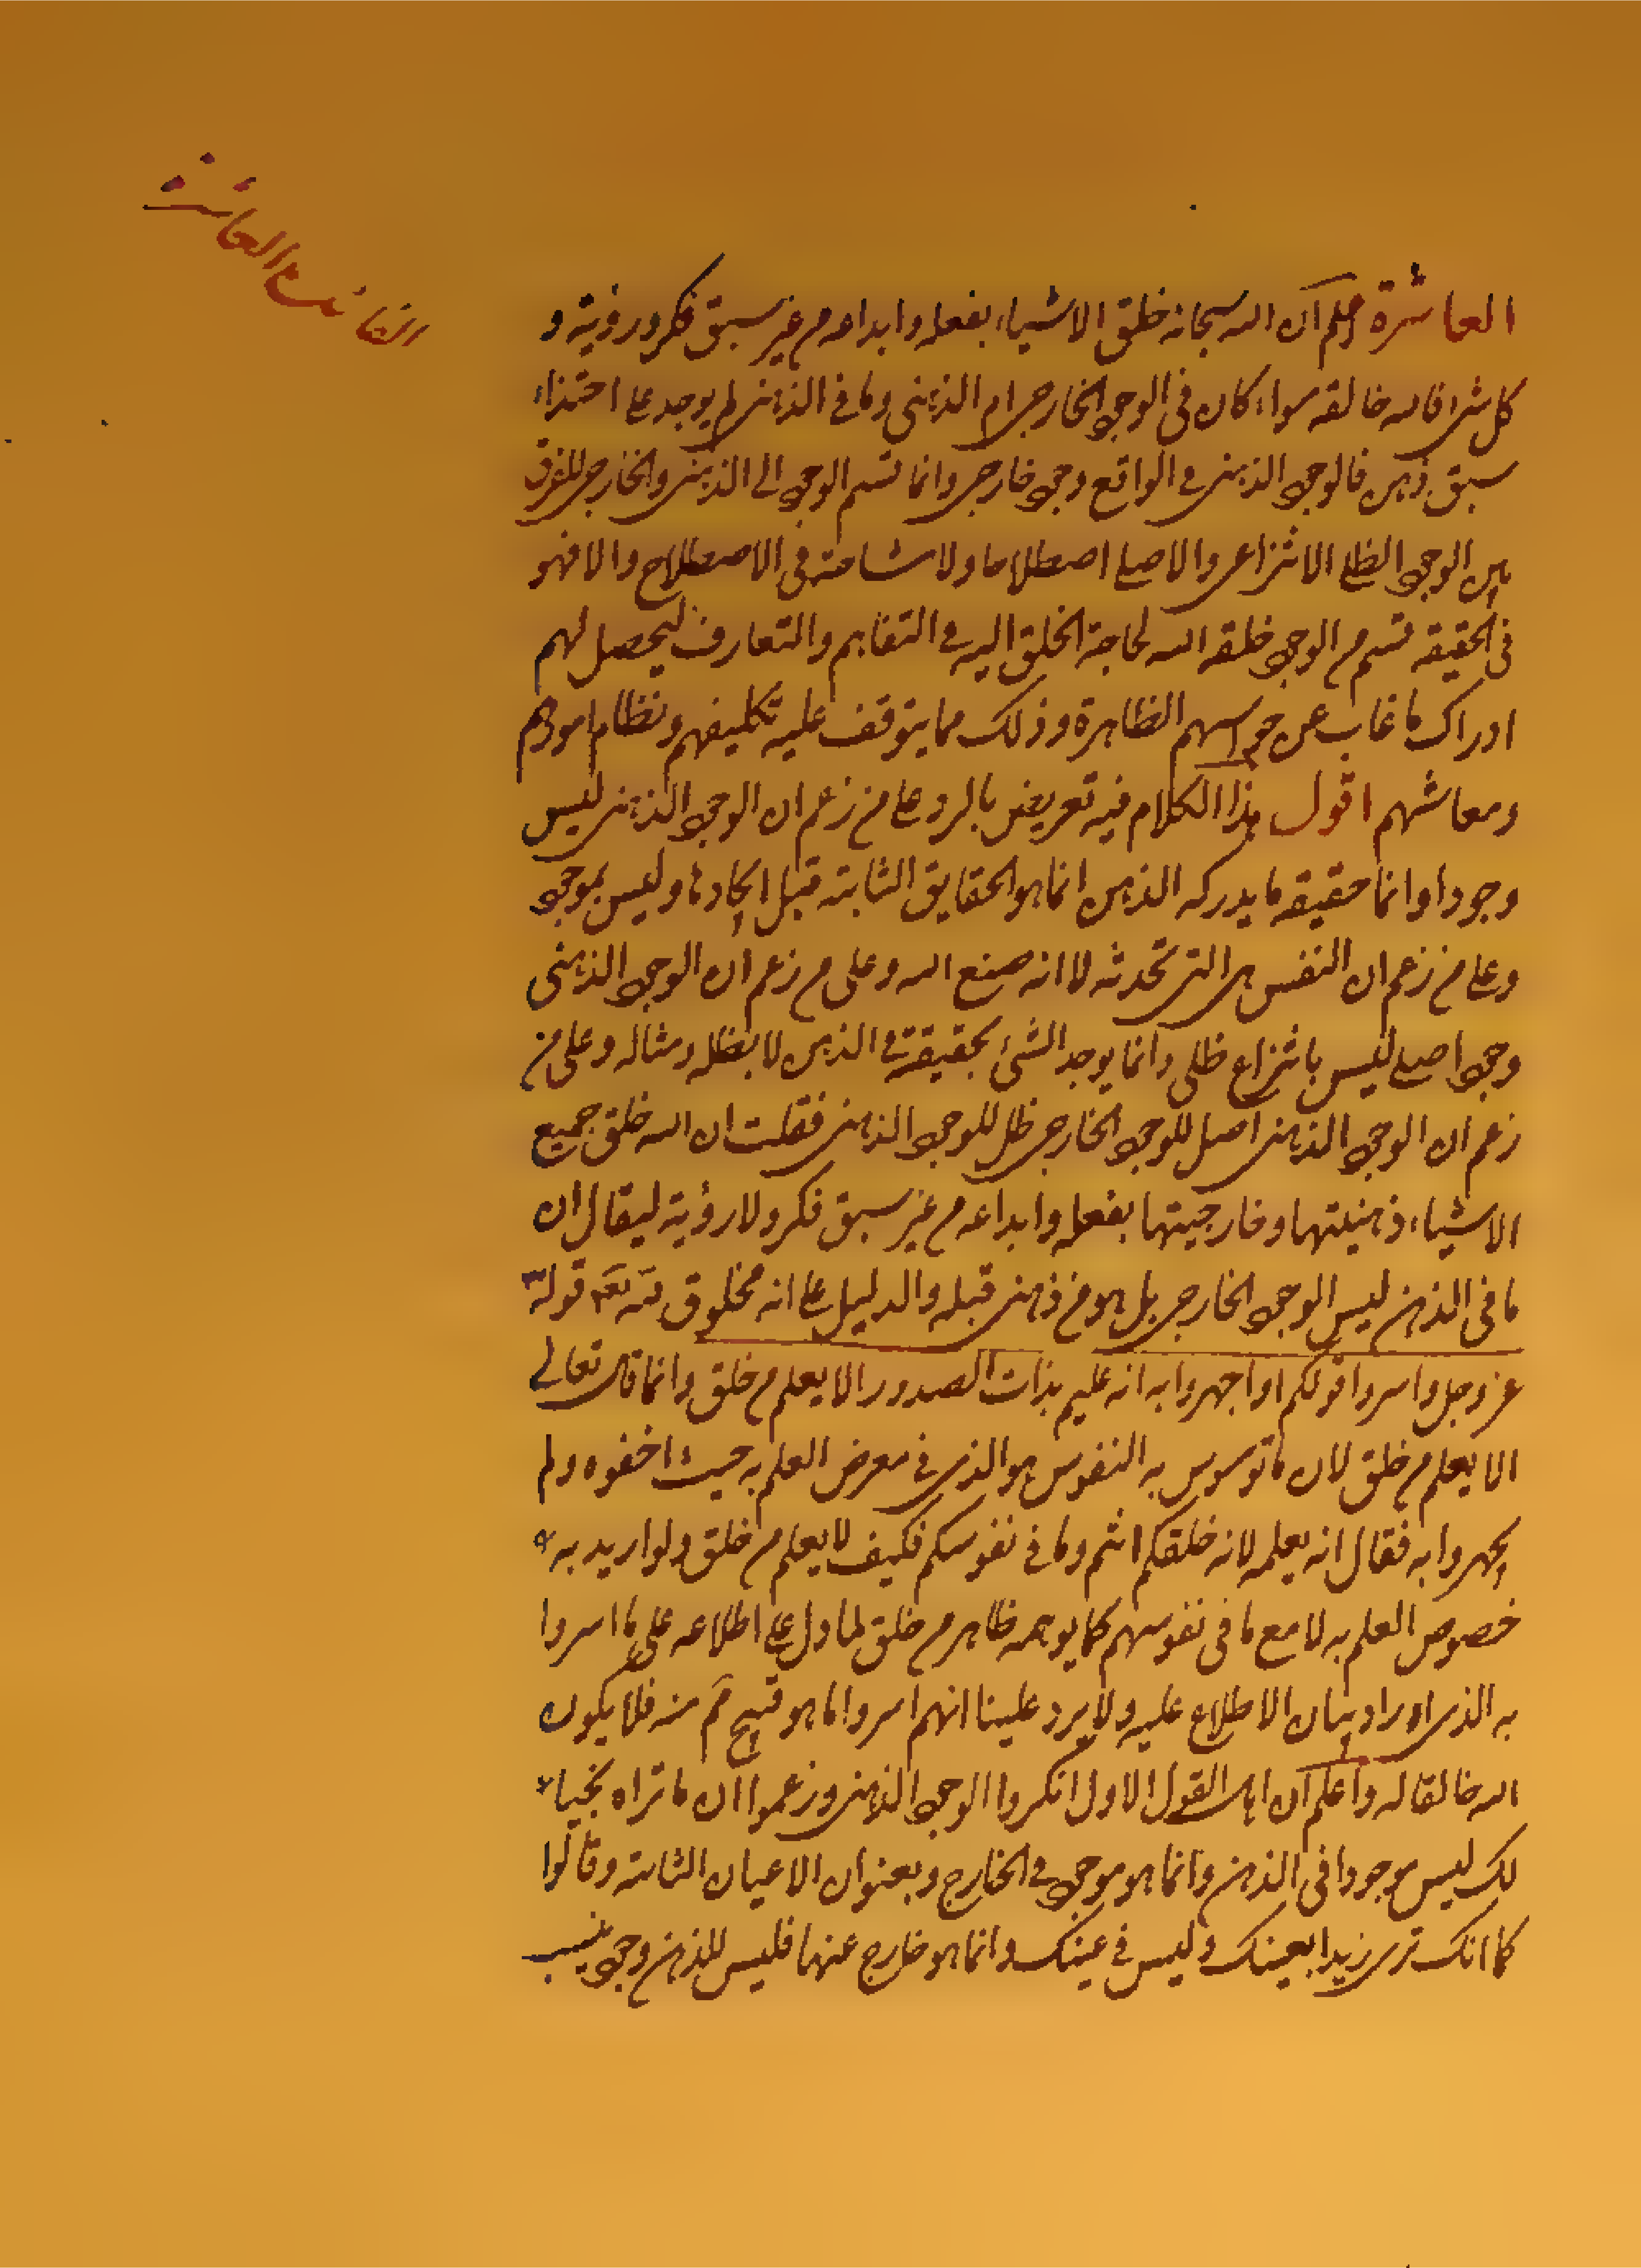 الفائدة العاشرة
العاشرة اعلم ان الله سبحانه خلق الاشياء بفعله وابداعه من غير سبق فكر وروية و
كل شئ فالله خالقه سواء كان فى الوجود الخارجى ام الذهنى وما فى الذهن لم يوجد على احتذاء
سبق ذهن فالوجود الذهنى فى الواقع وجود خارجى وانما قسم الوجود الى الذهنى والخارجى للفرق
بين الوجود الظلى الانتزاعى والاصلى اصطلاحا ولا مشاحة فى الاصطلاح والا فهو
فى الحقيقة قسم من الوجود خلقه الله لحاجة الخلق اليه فى التفاهم والتعارف ليحصل لهم
ادراك ما غاب عن حواسهم الظاهرة وذلك مما يتوقف عليه تكليفهم ونظام امورهم
ومعاشهم اقول هذا الكلام فيه تعريض بالرد على من زعم ان الوجود الذهنى ليس
وجودا وانما حقيقة ما يدركه الذهن انما هو الحقايق الثابتة قبل ايجادها وليس بموجود
وعلى من زعم ان النفس هى التى تحدثه لا انه صنع الله وعلى من زعم ان الوجود الذهنى
وجود اصلى ليس بانتزاع ظلى وانما يوجد الشئ بحقيقته فى الذهن لا بظله ومثاله وعلى من
زعم ان الوجود الذهنى اصل للوجود الخارجى ظل للوجود الذهنى فقلت ان الله خلق جميع
الاشياء ذهنيتها وخارجيتها بفعله وابداعه من غير سبق فكر ولا روية ليقال ان
ما فى الذهن ليس الوجود الخارجى بل هو من ذهنى قبله والدليل على انه مخلوق لله تعالى قوله
عز وجل واسروا قولكم او اجهروا به انه عليم بذات الصدور الا يعلم من خلق وانما قال تعالى
الا يعلم من خلق لان ما توسوس به النفوس هو الذى فى معرض العلم به حيث اخفوه ولم
يجهروا به فقال انه يعلمه لانه خلقكم انتم وما فى نفوسكم فكيف لا يعلم من خلق ولو اريد به
خصوص العلم به لا مع ما فى نفوسهم كما يوهمه ظاهر من خلق لما دل على اطلاعه على ما اسروا
به الذى اراد بيان الاطلاع عليه ولا يرد علينا انهم اسروا ما هو قبيح منه فلا يكون
الله خالقا له واعلم ان اهل القول الاول انكروا الوجود الذهنى وزعموا ان ما تراه بخيا
لك ليس موجودا فى الذهن وانما هو موجود فى الخارج وبعنوان الاعيان الثابتة وقالوا
كما انك ترى زيدا بعينك وليس فى عينك وانما هو خارج عنهما فليس للذهن وجود ينسب